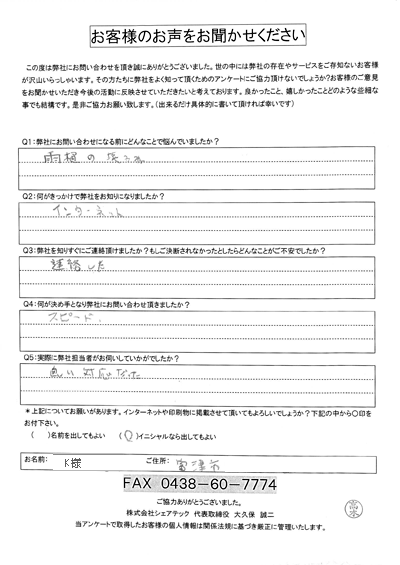 お客様のお声をお聞かせください
この度は弊社にお問い合わせを頂き誠にありがとうございました。世の中には弊社の存在やサービスをご存知ないお客様
が沢山いらっしゃいます。その方たちに弊社をよく知って頂くためのアンケートにご協力頂けないでしょうか?お客様のご意見
をお聞かせいただき今後の活動に反映させていただきたいと考えております。良かったこと、嬉しかったことどのような些細な
事でも結構です。是非ご協力お願い致します。(出来るだけ具体的に書いて頂ければ幸いです)
Q1:弊社にお問い合わせになる前にどんなことで悩んでいましたか?
雨樋の
Q2:何がきっかけで弊社をお知りになりましたか?
インターネット
Q3:弊社を知りすぐにご連絡頂けましたか?もしご決断されなかったとしたらどんなことがご不安でしたか?
連絡した
Q4:何が決め手となり弊社にお問い合わせ頂きましたか?
スピード.
Q5:実際に弊社担当者がお伺いしていかがでしたか?
良い対応だった
*上記についてお願いがあります。インターネットや印刷物に掲載させて頂いてもよろしいでしょうか?下記の中から〇印を
お付下さい。
( )名前を出してもよい (〇)イニシャルなら出してもよい
お名前: K様 ご住所: 富津市
FAX 0438-60-7774
ご協力ありがとうございました。
株式会社シェアテック 代表取締役 大久保 誠二
当アンケートで取得したお客様の個人情報は関係法規に基づき厳正に管理いたします。